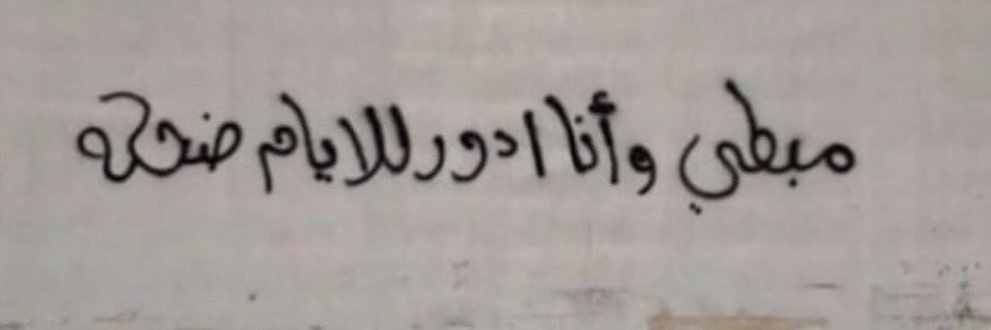 مبطي وأنا ادور للايام ضحكه